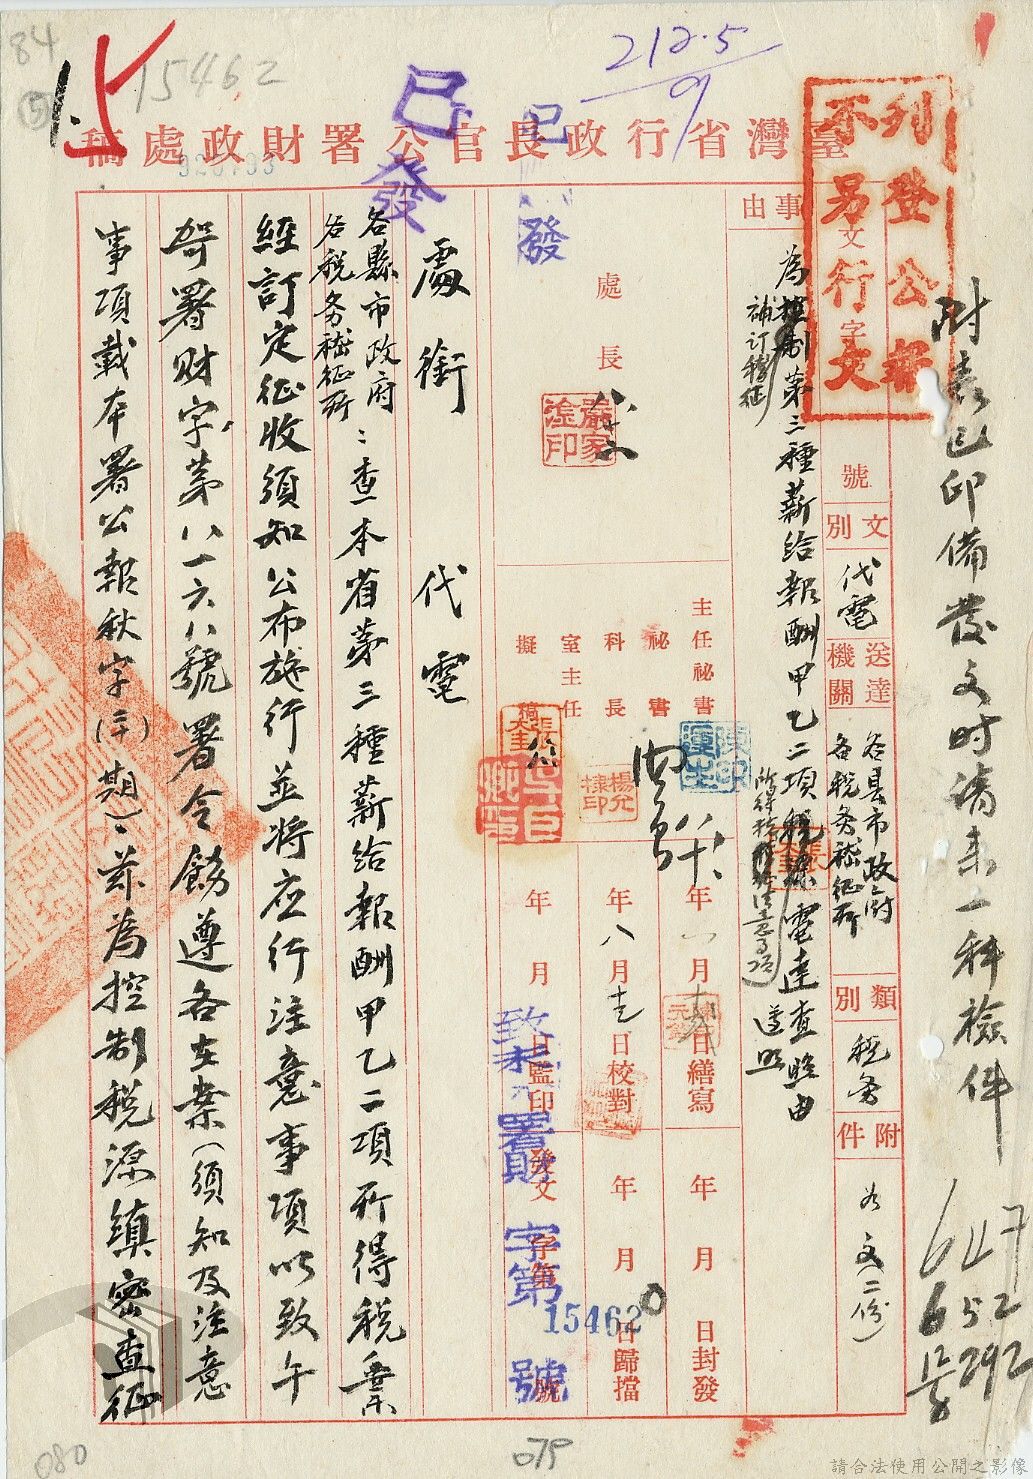 84
⑤
15462
212.5
已發
已發
臺灣省行政長官公署財政處稿
刊登公報
不另行文
附表已印備發文時請末一科檢件
647
652
292
文 字 號
文別
代電
送達機關
各县市政府
各稅务稽征所
類別
稅务
附件
为文(二份)
事由
為控制第三種薪給報酬甲乙二項
補訂稽征
電達查照由
遵照
處長
嚴家淦印
主任秘書
秘書
科長
室主任
擬稿
楊允棣印
年 月 日繕寫
年八月 日校對
年 月 日監印
年 月 日封發
年 月 日歸擋
發文 字第 號
致未 署財 字第 號
15462
處銜 代電
各縣市政府
各稅务稽征所
：查本省第三種薪給報酬甲乙二項所得稅業
經訂定征收須知公布施行並將应行注意事項以致午
哿署财字第八一六八號署令飭遵各在案(須知及注意
事項載本署公報秋字(三十)期)、茲為控制税源縝密查征
080
079
請合法使用公開之影像